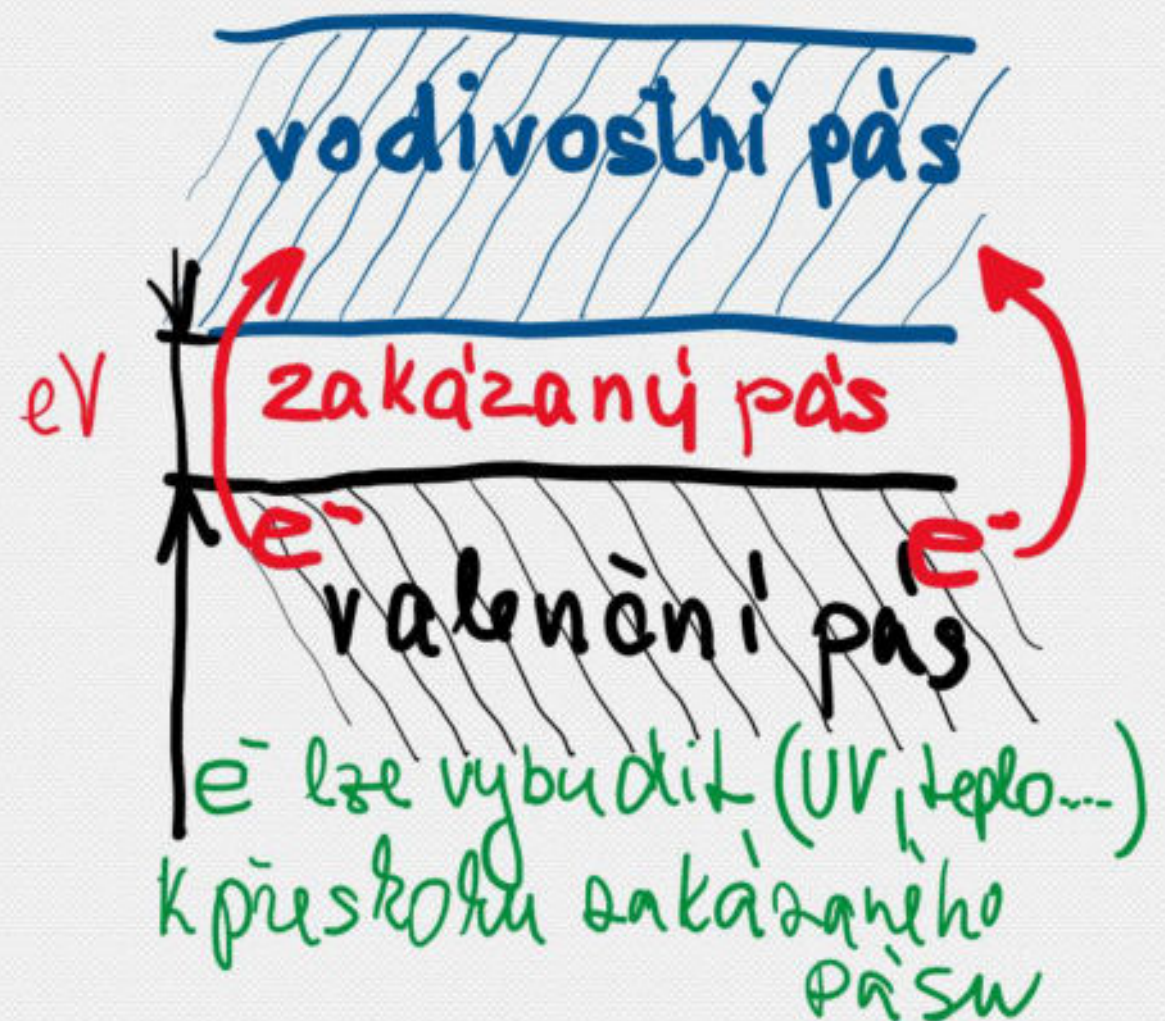 vodivostní pás
eV
zakázaný pás
e⁻
e⁻
valenční pás
e⁻ lze vybudit (UV, teplo...)
k přeskoku zakázaného
pásu